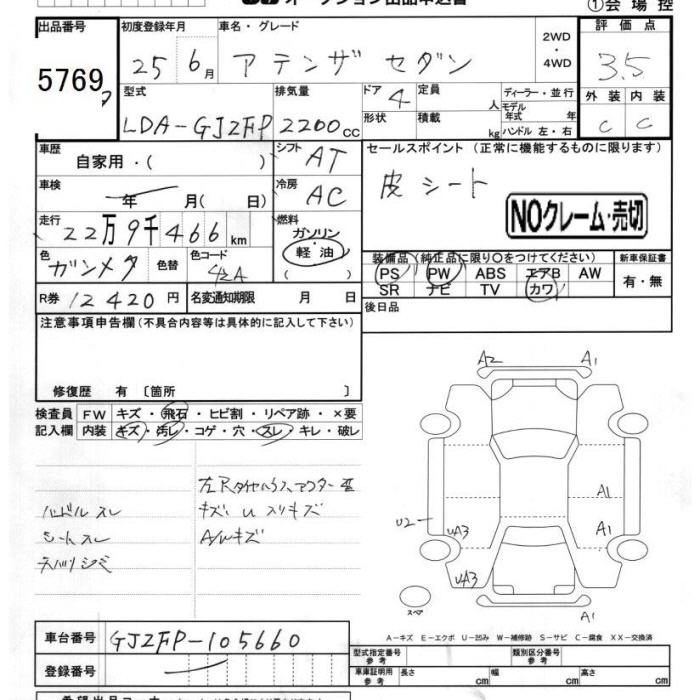 オークション出品申込書
①会場控
出品番号 初度登録年月 車名・グレード 2WD・4WD 評価点
5769 25年 6月 アテンザ セダン 3.5
型式 排気量 ドア 4 定員 人 ディーラー・並行 外装 内装
LDA-GJ2FP 2200cc 形状 積載 kg モデル年式 年式 ハンドル 左・右 C C
車歴 自家用・( ) シフト AT セールスポイント (正常に機能するものに限ります)
車検 年 月( 日) 冷房 AC 皮シート
NOクレーム・売切
走行 22万9千466km 燃料 ガソリン・軽油 ( )
装備品 (純正品に限り○をつけてください) 新車保証書
色 ガンメタ 色替 色コード 42A
PS PW ABS エアB AW 有・無
SR ナビ TV カワ
R券 12420円 名変通知期限 月 日
後日品
注意事項申告欄(不具合内容等は具体的に記入して下さい)
修復歴 有 〔箇所 〕
検査員 FW キズ・飛石・ヒビ割・リペア跡・×要
記入欄 内装 キズ・汚レ・コゲ・穴・スレ・キレ・破レ
ハンドルスレ
シートスレ
天バリシミ
キズ U スリキズ
A/Wキズ
A2 A1
A1
U2 UA3 A1
UA3
A1
スペア
A-キズ E-エクボ U-凹み W-補修跡 S-サビ C-腐食 XX-交換済
車台番号 GJ2FP-105660
登録番号
型式指定番号 参考 類別区分番号 参考
車庫証明用 参考 長さ cm 幅 cm 高さ cm
希望出品コーナー